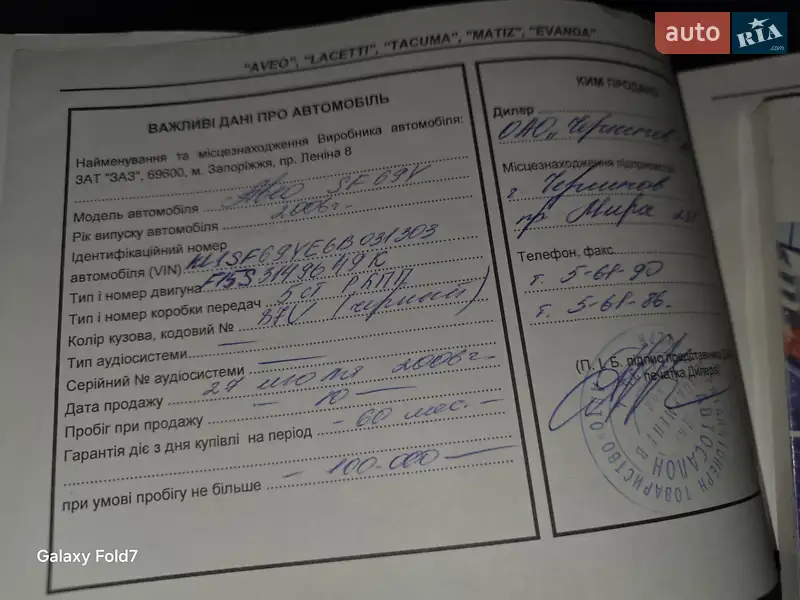 auto RIA .com
"AVEO", "LACETTI", "TACUMA", "MATIZ", "EVANDA"
ВАЖЛИВІ ДАНІ ПРО АВТОМОБІЛЬ
Найменування та місцезнаходження Виробника автомобіля:
ЗАТ "ЗАЗ", 69600, м. Запоріжжя, пр. Леніна 8
Модель автомобіля Aveo SF69Y
Рік випуску автомобіля 2006г-
Ідентифікаційний номер
автомобіля (VIN) KL1SF69YE6B031303
Тип і номер двигуна F15S3149649K
Тип і номер коробки передач 5ст РКПП
Колір кузова, кодовий № 87U (черный)
Тип аудіосистеми —
Серійний № аудіосистеми —
Дата продажу 27 июля 2006г-
Пробіг при продажу — 10 —
Гарантія діє з дня купівлі на період - 60 мес. -
при умові пробігу не більше - 100.000 —
КИМ ПРОДАНО
Дилер
ОАО "Чернигов
Місцезнаходження підприємства
г. Чернигов
пр Мира
Телефон, факс
т. 5-68-90
т. 5-68-86.
(П. І. Б. підпис представника
печатка Дилера
ТОВАРИСТВО
АВТОСАЛОН
Galaxy Fold7